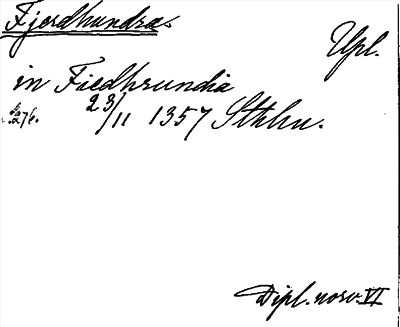 Fjerdhundra.
Upl.
in Fiedhrundia
23/11 1357 Sthlm.
Dipl. norv. VI